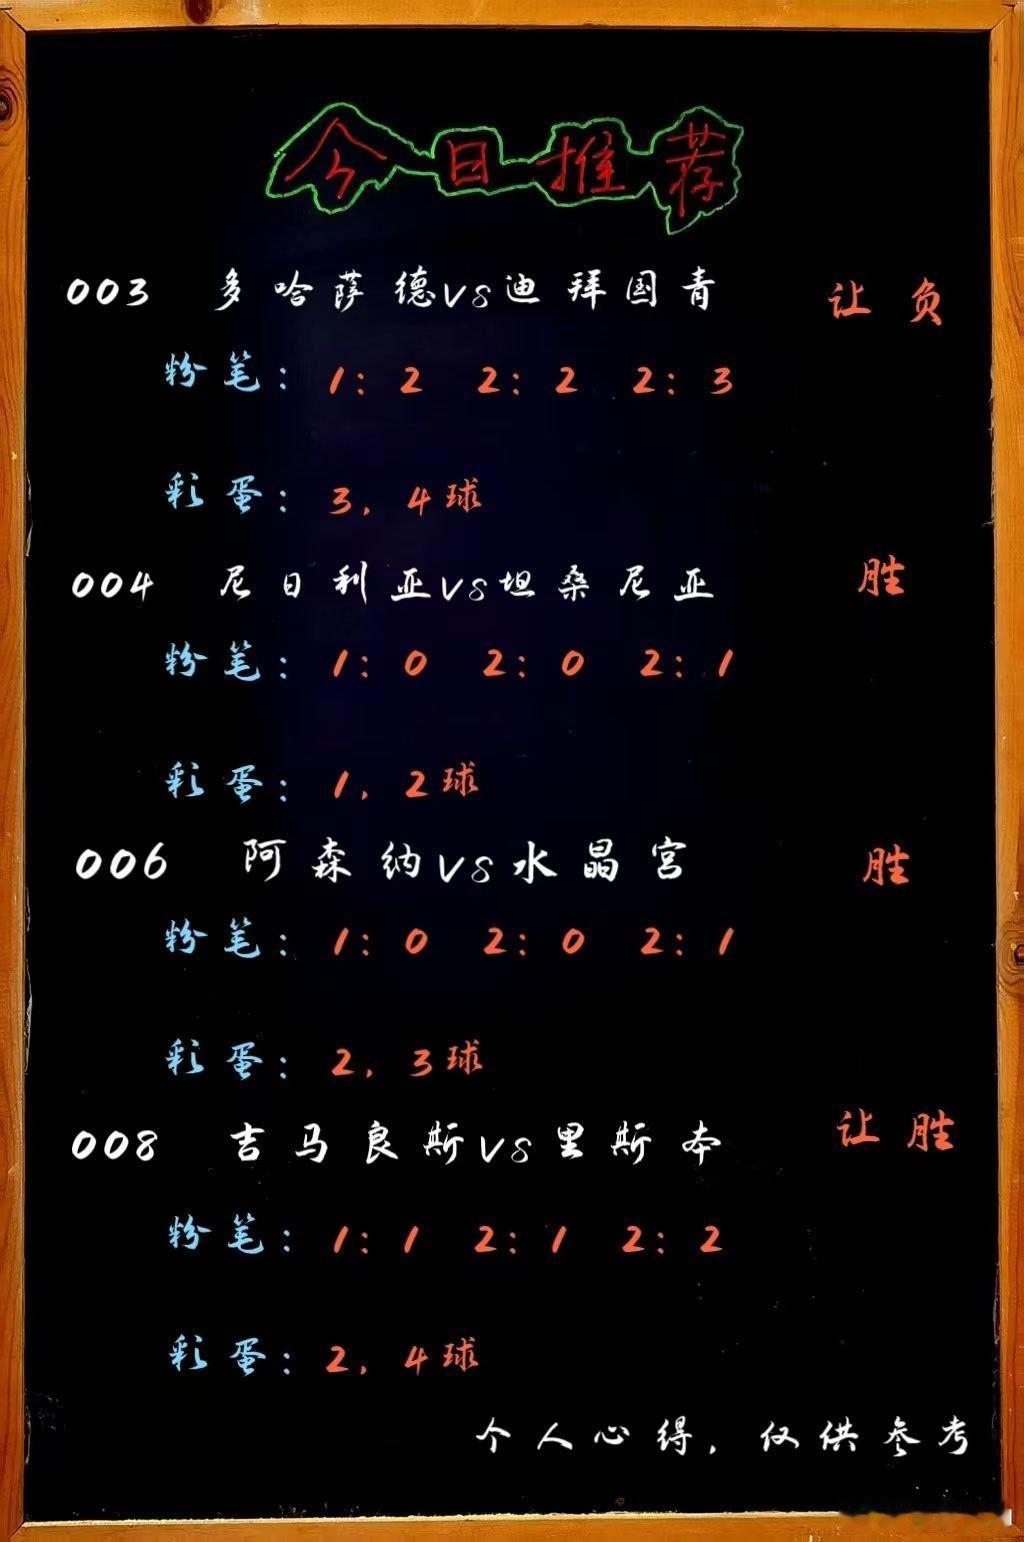 今日推荐
003 多哈萨德VS迪拜国青 让负
粉笔: 1:2 2:2 2:3
彩蛋: 3,4球
004 尼日利亚VS坦桑尼亚 胜
粉笔: 1:0 2:0 2:1
彩蛋: 1,2球
006 阿森纳VS水晶宫 胜
粉笔: 1:0 2:0 2:1
彩蛋: 2,3球
008 吉马良斯VS里斯本 让胜
粉笔: 1:1 2:1 2:2
彩蛋: 2,4球
个人心得,仅供参考